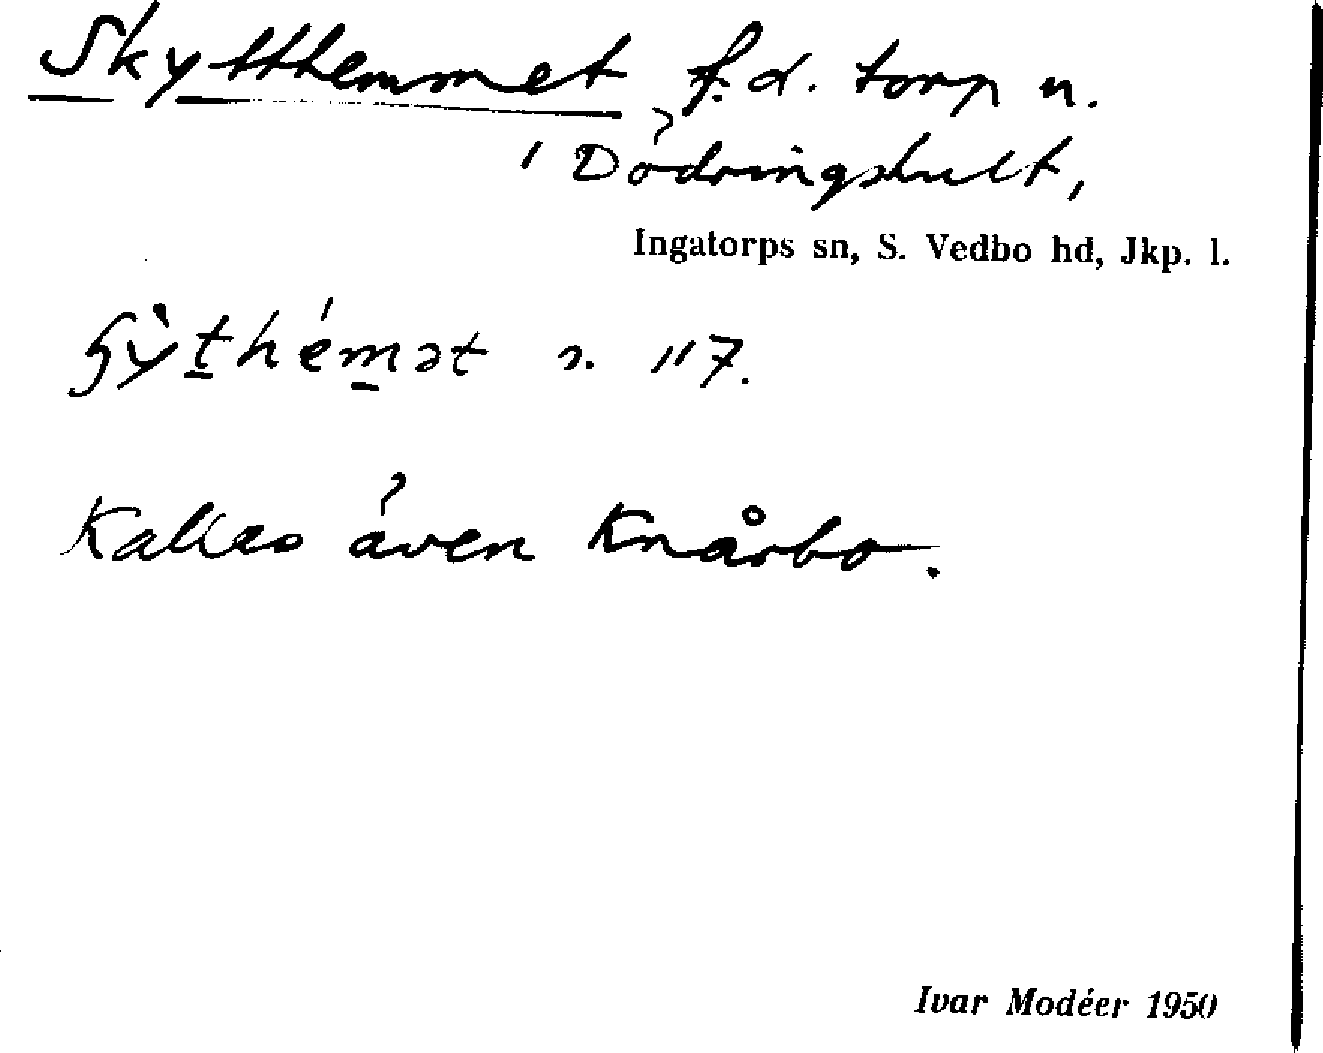 Skytthemmet f.d. torp u.
i Dödringshult,
Ingatorps sn, S. Vedbo hd, Jkp. l.
n. 117.
Kallas även Knårbo.
Ivar Modéer 1950